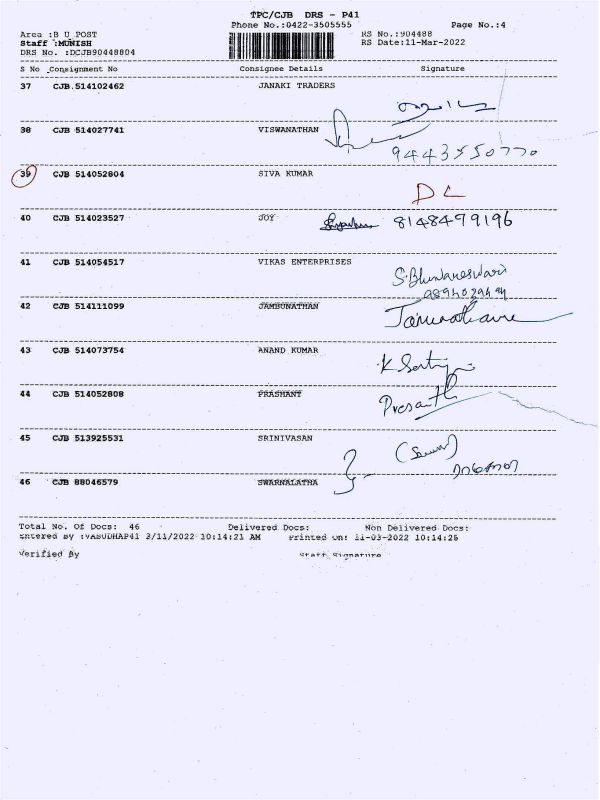 TPC/CJB DRS - P41
Phone No.:0422-3505555 Page No.:4
Area :B U POST RS No.:904488
Staff :MUNISH RS Date:11-Mar-2022
DRS No. :DCJB90448804
S No Consignment No Consignee Details Signature
37 CJB 514102462 JANAKI TRADERS
38 CJB 514027741 VISWANATHAN
9443350770
39 CJB 514052804 SIVA KUMAR
DL
40 CJB 514023527 JOY 8148499196
41 CJB 514054517 VIKAS ENTERPRISES
S.Bhuvaneswari
42 CJB 514111099 JAMBUNATHAN
43 CJB 514073754 ANAND KUMAR
44 CJB 514052808 PRASHANT
Prasanth
45 CJB 513925531 SRINIVASAN
46 CJB 88046579 SWARNALATHA
Total No. Of Docs: 46 Delivered Docs: Non Delivered Docs:
Entered By :VASUDHAP41 3/11/2022 10:14:21 AM Printed On: 11-03-2022 10:14:25
Verified By Staff Signature